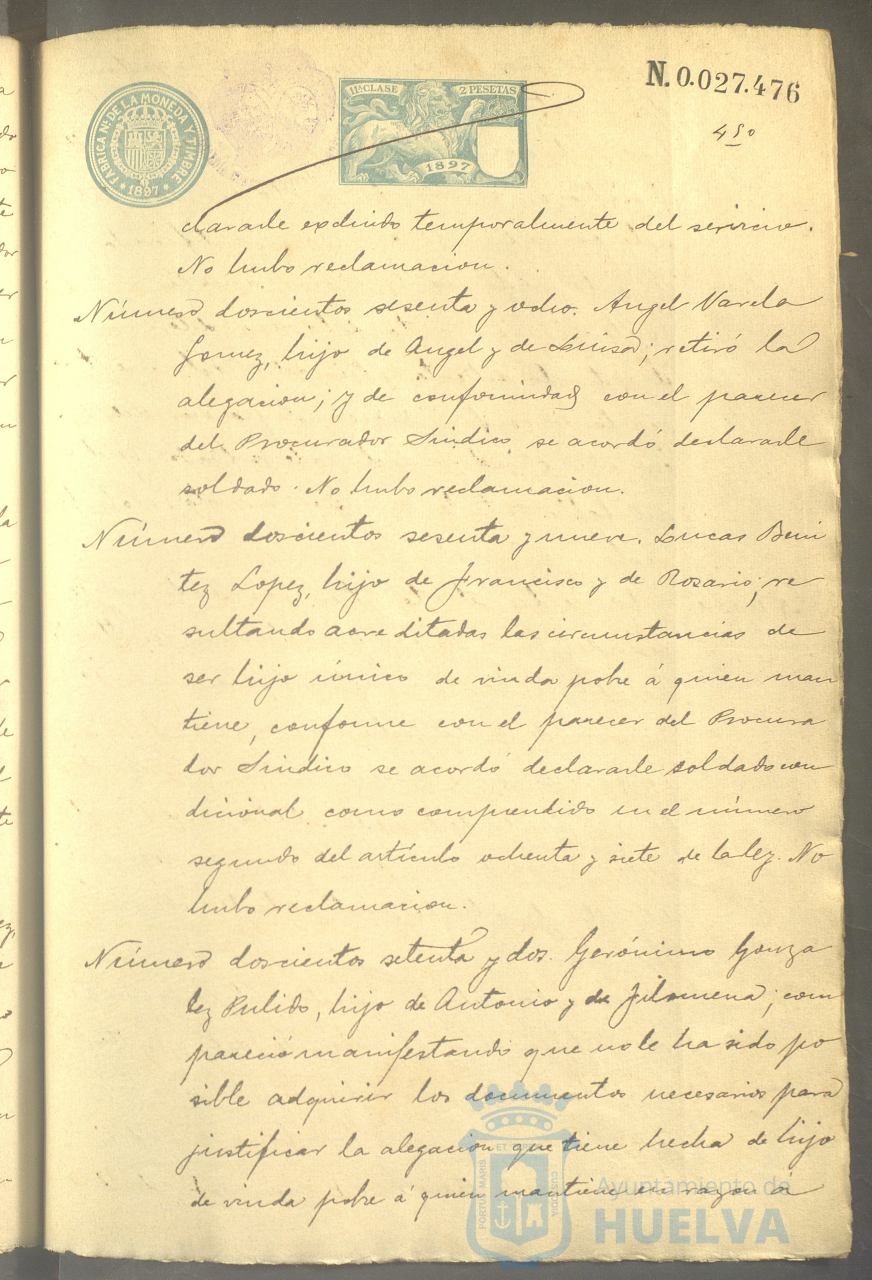 FÁBRICA Nª DE LA MONEDA Y TIMBRE
* 1897 *
11ª CLASE 2 PESETAS
1897
N.0.027.476
clararle excluido temporalmente del servicio.
No hubo reclamacion.
Número doscientos sesenta y ocho. Angel Varela
Gomez, hijo de Angel y de Luisa; retiró la
alegacion; y de conformidad con el parecer
del Procurador Sindico se acordó declararle
soldado. No hubo reclamacion.
Número doscientos sesenta y nueve. Lucas Beni
tez Lopez, hijo de Francisco y de Rosario; re
sultando acreditadas las circunstancias de
ser hijo único de viuda pobre á quien man
tiene, conforme con el parecer del Procura
dor Sindico se acordó declararle soldado con
dicional como comprendido en el número
segundo del artículo ochenta y siete de la ley. No
hubo reclamacion.
Número doscientos setenta y dos. Gerónimo Gonza
lez Pulido, hijo de Antonio y de Filomena; com
pareció manifestando que no le ha sido po
sible adquirir los documentos necesarios para
justificar la alegacion que tiene hecha de hijo
de viuda pobre á quien mantiene en razon á
PORTUS MARIS ET TERRAE CUSTODIA
Ayuntamiento de
HUELVA